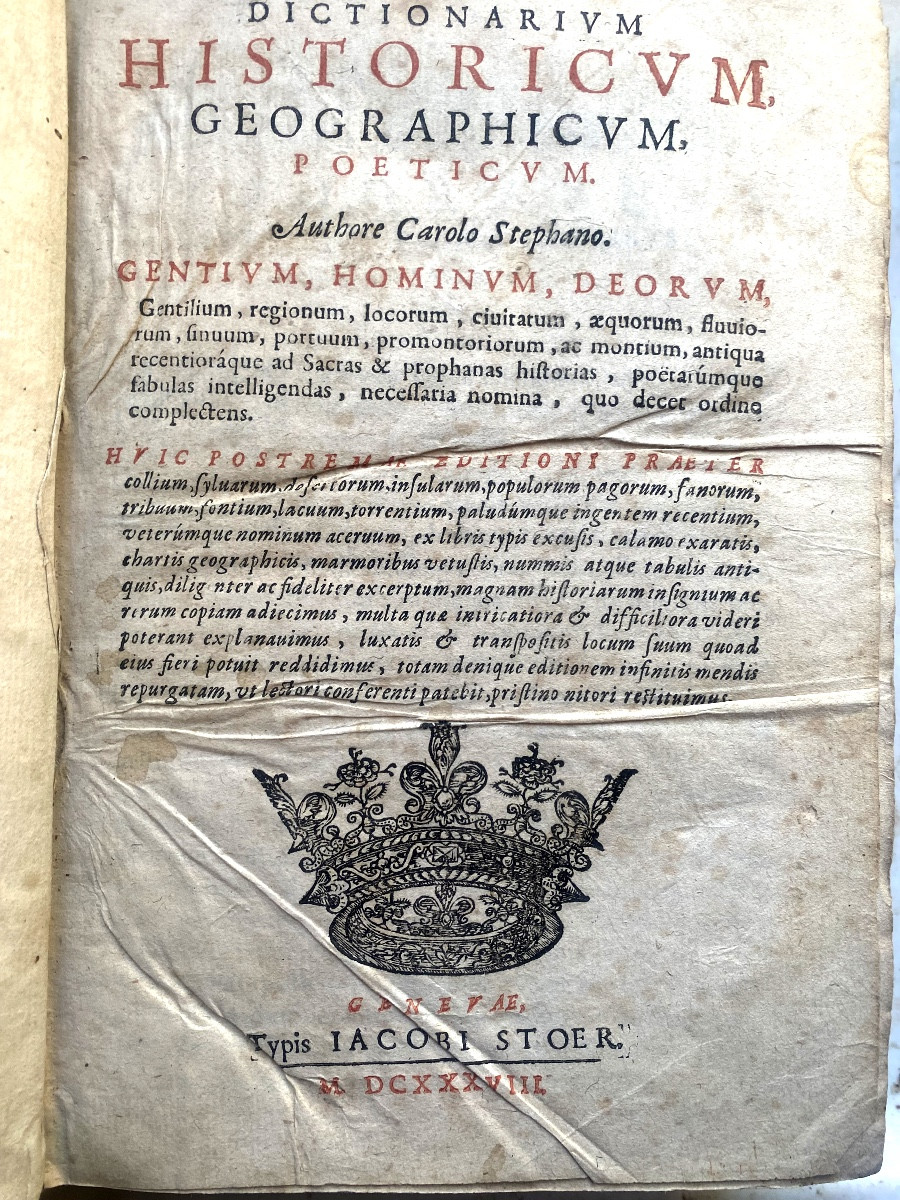 DICTIONARIVM
HISTORICVM,
GEOGRAPHICVM,
POETICVM.
Authore Carolo Stephano.
GENTIVM, HOMINVM, DEORVM,
Gentilium, regionum, locorum, ciuitatum, æquorum, fluuio-
rum, ſinuum, portuum, promontoriorum, ac montium, antiqua
recentioráque ad Sacras & prophanas hiſtorias, poëtarúmque
fabulas intelligendas, neceſſaria nomina, quo decet ordine
complectens.
HVIC POSTREMAE EDITIONI PRAETER
collium, ſyluarum, deſertorum, inſularum, populorum pagorum, fanorum,
tribuum, fontium, lacuum, torrentium, paludúmque ingentem recentium,
veterúmque nominum aceruum, ex libris typis excuſis, calamo exaratis,
chartis geographicis, marmoribus vetuſtis, nummis atque tabulis anti-
quis, dilig nter ac fideliter excerptum, magnam hiſtoriarum inſignium ac
rerum copiam adiecimus, multa quæ intricatiora & difficiliora videri
poterant explanauimus, luxatis & tranſpoſitis locum ſuum quoad
eius fieri potuit reddidimus, totam denique editionem infinitis mendis
repurgatam, vt lectori conferenti patebit, priſtino nitori reſtituimus
GENEVAE,
Typis IACOBI STOER.
M. DCXXXVIII.